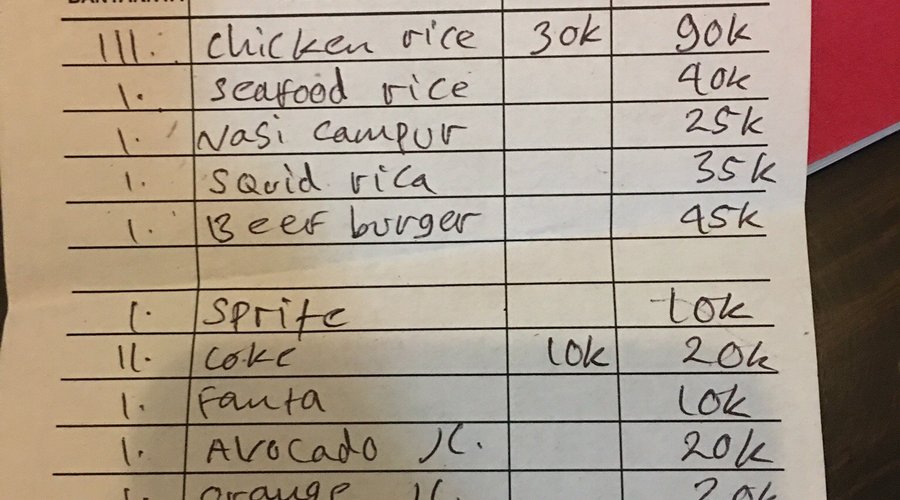 III. chicken rice 30k 90k
1. seafood rice 40k
1. Nasi campur 25k
1. Squid rica 35k
1. Beef burger 45k
1. Sprite 10k
II. coke 10k 20k
1. Fanta 10k
1. Avocado JC. 20k
1. orange JC. 20k